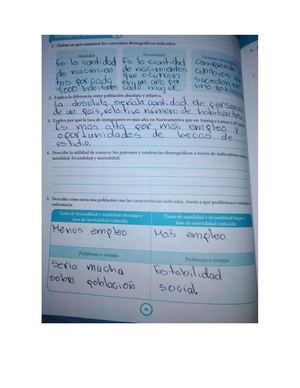 1. Define en qué consisten los conceptos demográficos indicados.
Natalidad
Es la cantidad
de nacimien
tos por cada
1,000 habitantes
Es la cantidad
de nacimientos
que ocurren
en un año por
cada mujer.
Comprende
cambios
suceden
una
2. Explica la diferencia entre población absoluta y relativa.
La absoluta señala cantidad de personas
de un país, relativa número de habitantes
3. Explica por qué la tasa de inmigrantes es más alta en Norteamérica que en América Latina
Es mas alta por mas empleo y
oportunidades de becas de
estudio.
4. Describe la utilidad de conocer los patrones y tendencias demográficas a través de indicadores como
natalidad, fecundidad y mortalidad.
5. Describe cómo sería una población con las características indicadas. Anota a qué problemas o ventajas
enfrentaría.
Tasas de fecundidad y natalidad elevadas y
tasa de mortalidad reducida
Tasas de natalidad y fecundidad bajas y
tasa de mortalidad reducida
Menos empleo
Mas empleo
Problemas o ventajas
Problemas o ventajas
Seria mucha
sobre población
Estabilidad
social.